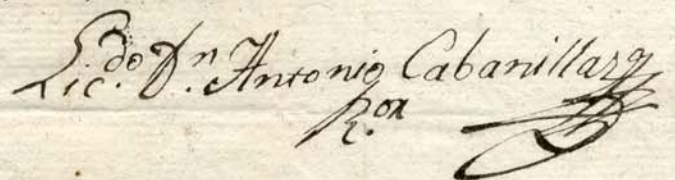 Lic.do D.n Antonio Cabanillas
R.or